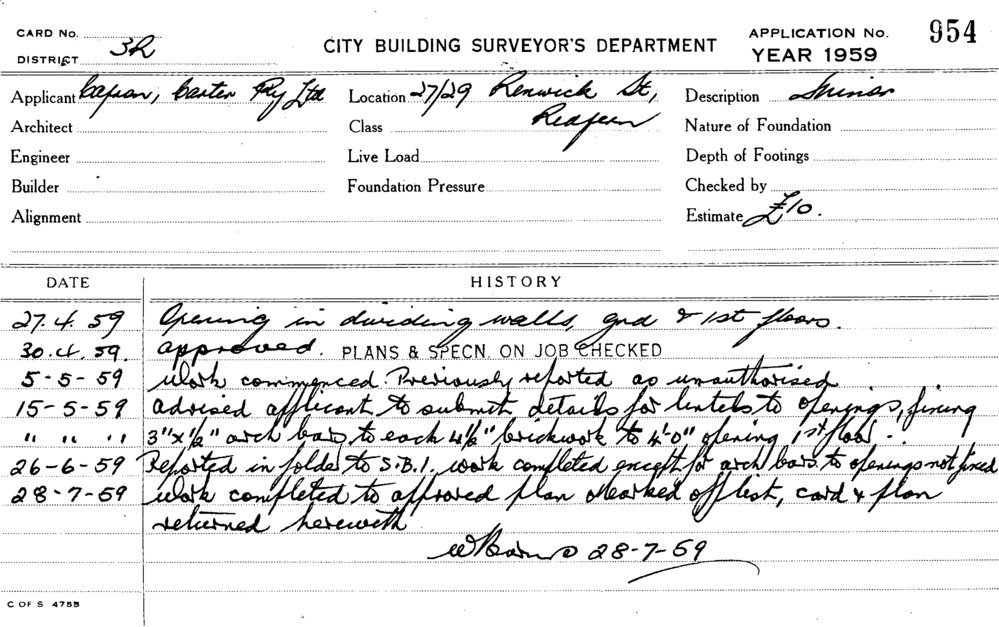 CARD No.
DISTRICT 3R
CITY BUILDING SURVEYOR'S DEPARTMENT
APPLICATION No. 954
YEAR 1959
Applicant Carter Pty Ltd
Location 27/29 Renwick St,
Redfern
Description Minor
Architect
Class
Nature of Foundation
Engineer
Live Load
Depth of Footings
Builder
Foundation Pressure
Checked by
Alignment
Estimate £10.
DATE
HISTORY
27.4.59 Opening in dividing walls, gnd & 1st floors.
30.4.59. approved. PLANS & SPECN. ON JOB CHECKED
5-5-59 Work commenced. Previously reported as unauthorised
15-5-59 advised applicant to submit details for lintels to openings, fixing
" " " 3"x½" arch bars, to each 4½" brickwork to 4'-0" opening 1st floor.
26-6-59 Reported in folder to S.B.I. work completed except for arch bars to openings not fixed
28-7-59 Work completed to approved plan Marked off list, card & plan
returned herewith
28-7-59
C OF S 4755